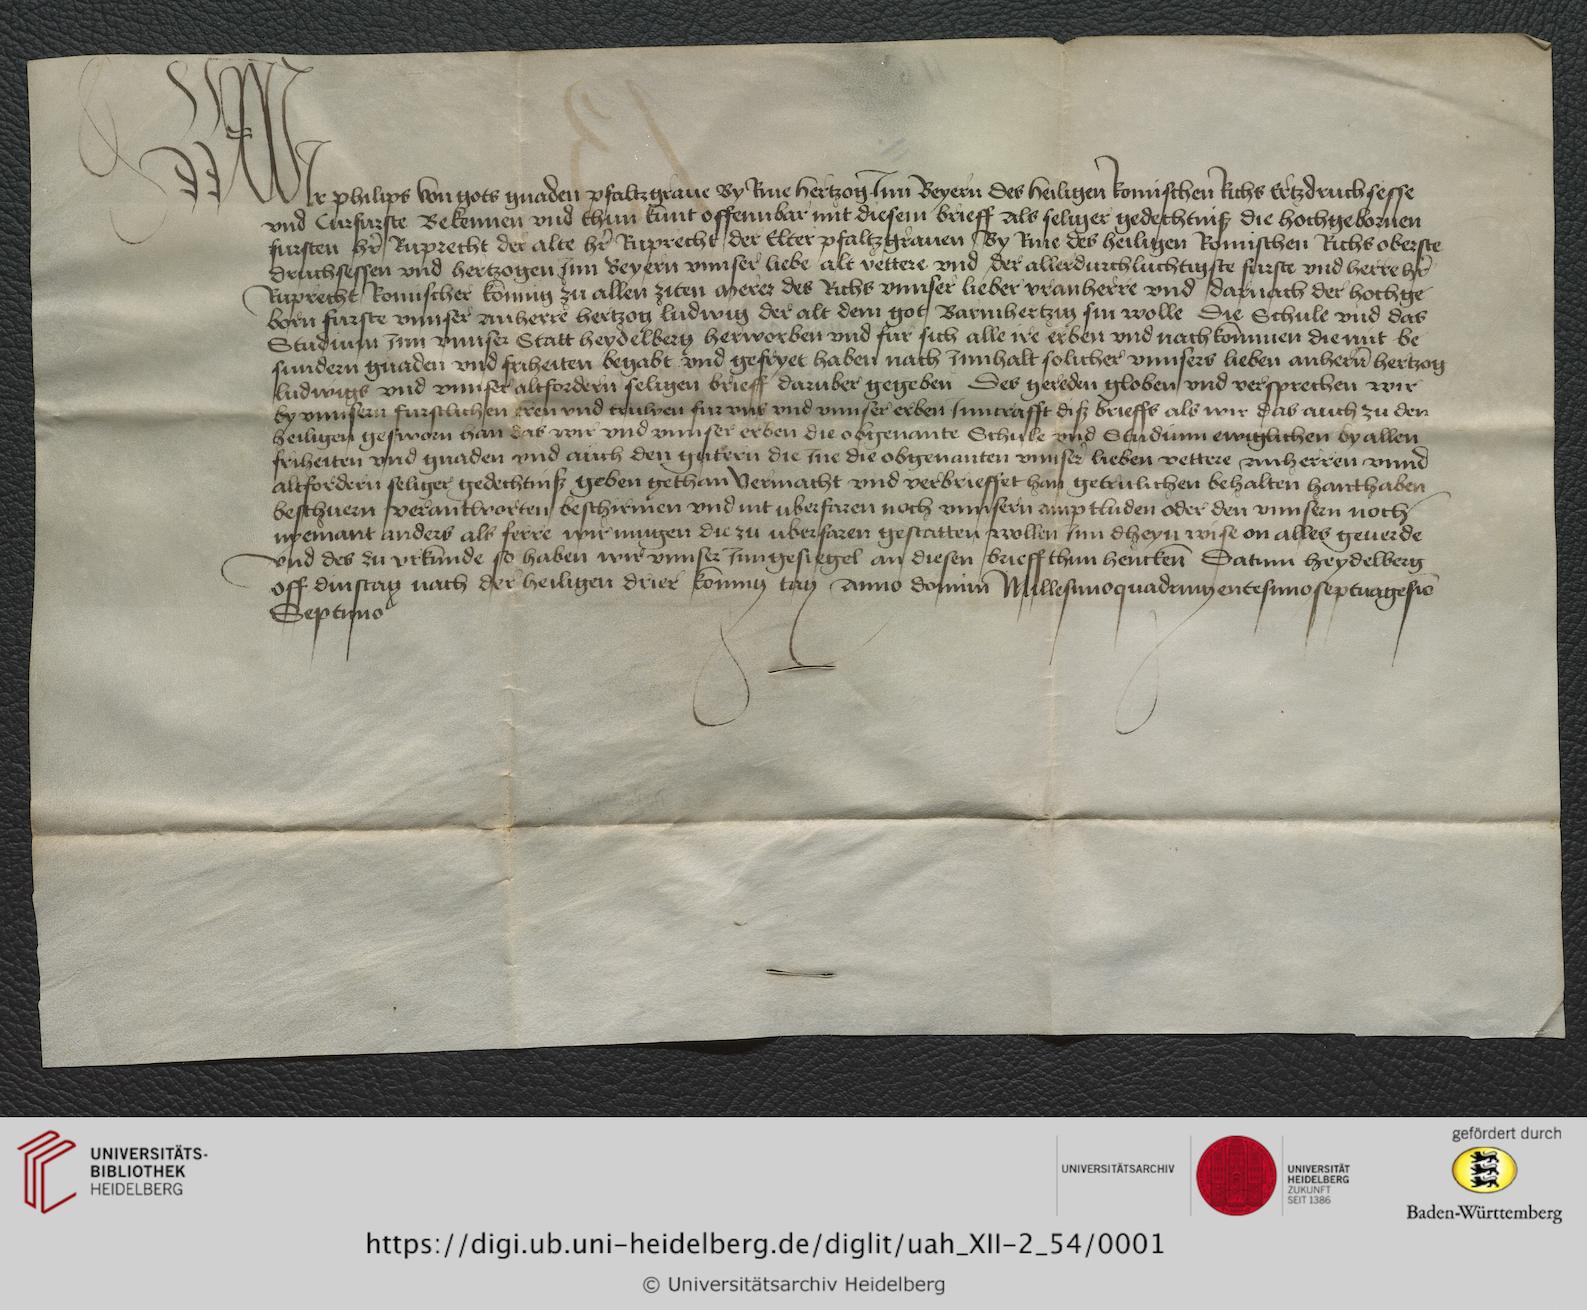 Wir philips von gots gnaden pfaltzgraue By Rine hertzog Inn Beyern des heiligen Romischen Richs Ertzdruchsesse
vnd Curfurste Bekennen vnd thun kunt offennbar mit diesem brieff Als seliger gedechtniß die hochgebornen
fursten hr̄ Ruprecht der alte hr̄ Ruprecht der Elter pfaltzgrauen By Rine des heiligen Romischen Richs oberste
druchsessen vnd hertzogen Inn Beyern vnnser liebe alt vettere vnd der allerdurchluchtigste furste vnd herre hr̄
Ruprecht Romischer konnig zu allen ziten merer des Richs vnnser lieber vranherre vnd darnach der hochge
born furste vnnser anherre hertzog ludwig der alt dem got Barmhertzig sin wolle Die Schule vnd das
Studium Inn vnnser Statt heydelberg herworben vnd fur sich alle ire erben vnd nachkommen die mit be
sundern gnaden vnd friheiten begabt vnd gefryet haben nach Innhalt solicher vnnsers lieben anhern̄ hertzog
ludwigs vnd vnnser altfordern seligen brieff daruber gegeben Des gereden globen vnd versprechen wir
by vnnsern furstlichen eren vnd truwen fur vns vnd vnnser erben Inncrafft diß brieffs als wir das auch zu den
heiligen gesworn han das wir vnd vnnser erben die obgenante Schule vnd Studium ewiglichen by allen
friheiten vnd gnaden vnd auch den gutern die Ine die obgenanten vnnser lieben vettere anherren vnnd
altfordern seliger gedechtniß geben gethan vermacht vnd verbriefft han getrulichen behalten hanthaben
beschuern verantworten beschirmen vnd nit uberfaren noch vnnsern amptluden oder den vnnsern noch
nyemant anders als ferre wir mugen die zu uberfaren gestatten wollen Inn dheyn wise on alles geuerde
vnd des zu vrkunde so haben wir vnnser Inngesiegel an diesen brieff thun hencken̄ Datum heydelberg
off dinstag nach der heiligen drier konnig tag Anno domini Millesimoquadringentesimoseptuagesiō
Septimo
UNIVERSITÄTS-
BIBLIOTHEK
HEIDELBERG
UNIVERSITÄTSARCHIV
UNIVERSITÄT
HEIDELBERG
ZUKUNFT
SEIT 1386
gefördert durch
Baden-Württemberg
https://digi.ub.uni-heidelberg.de/diglit/uah_XII-2_54/0001
© Universitätsarchiv Heidelberg